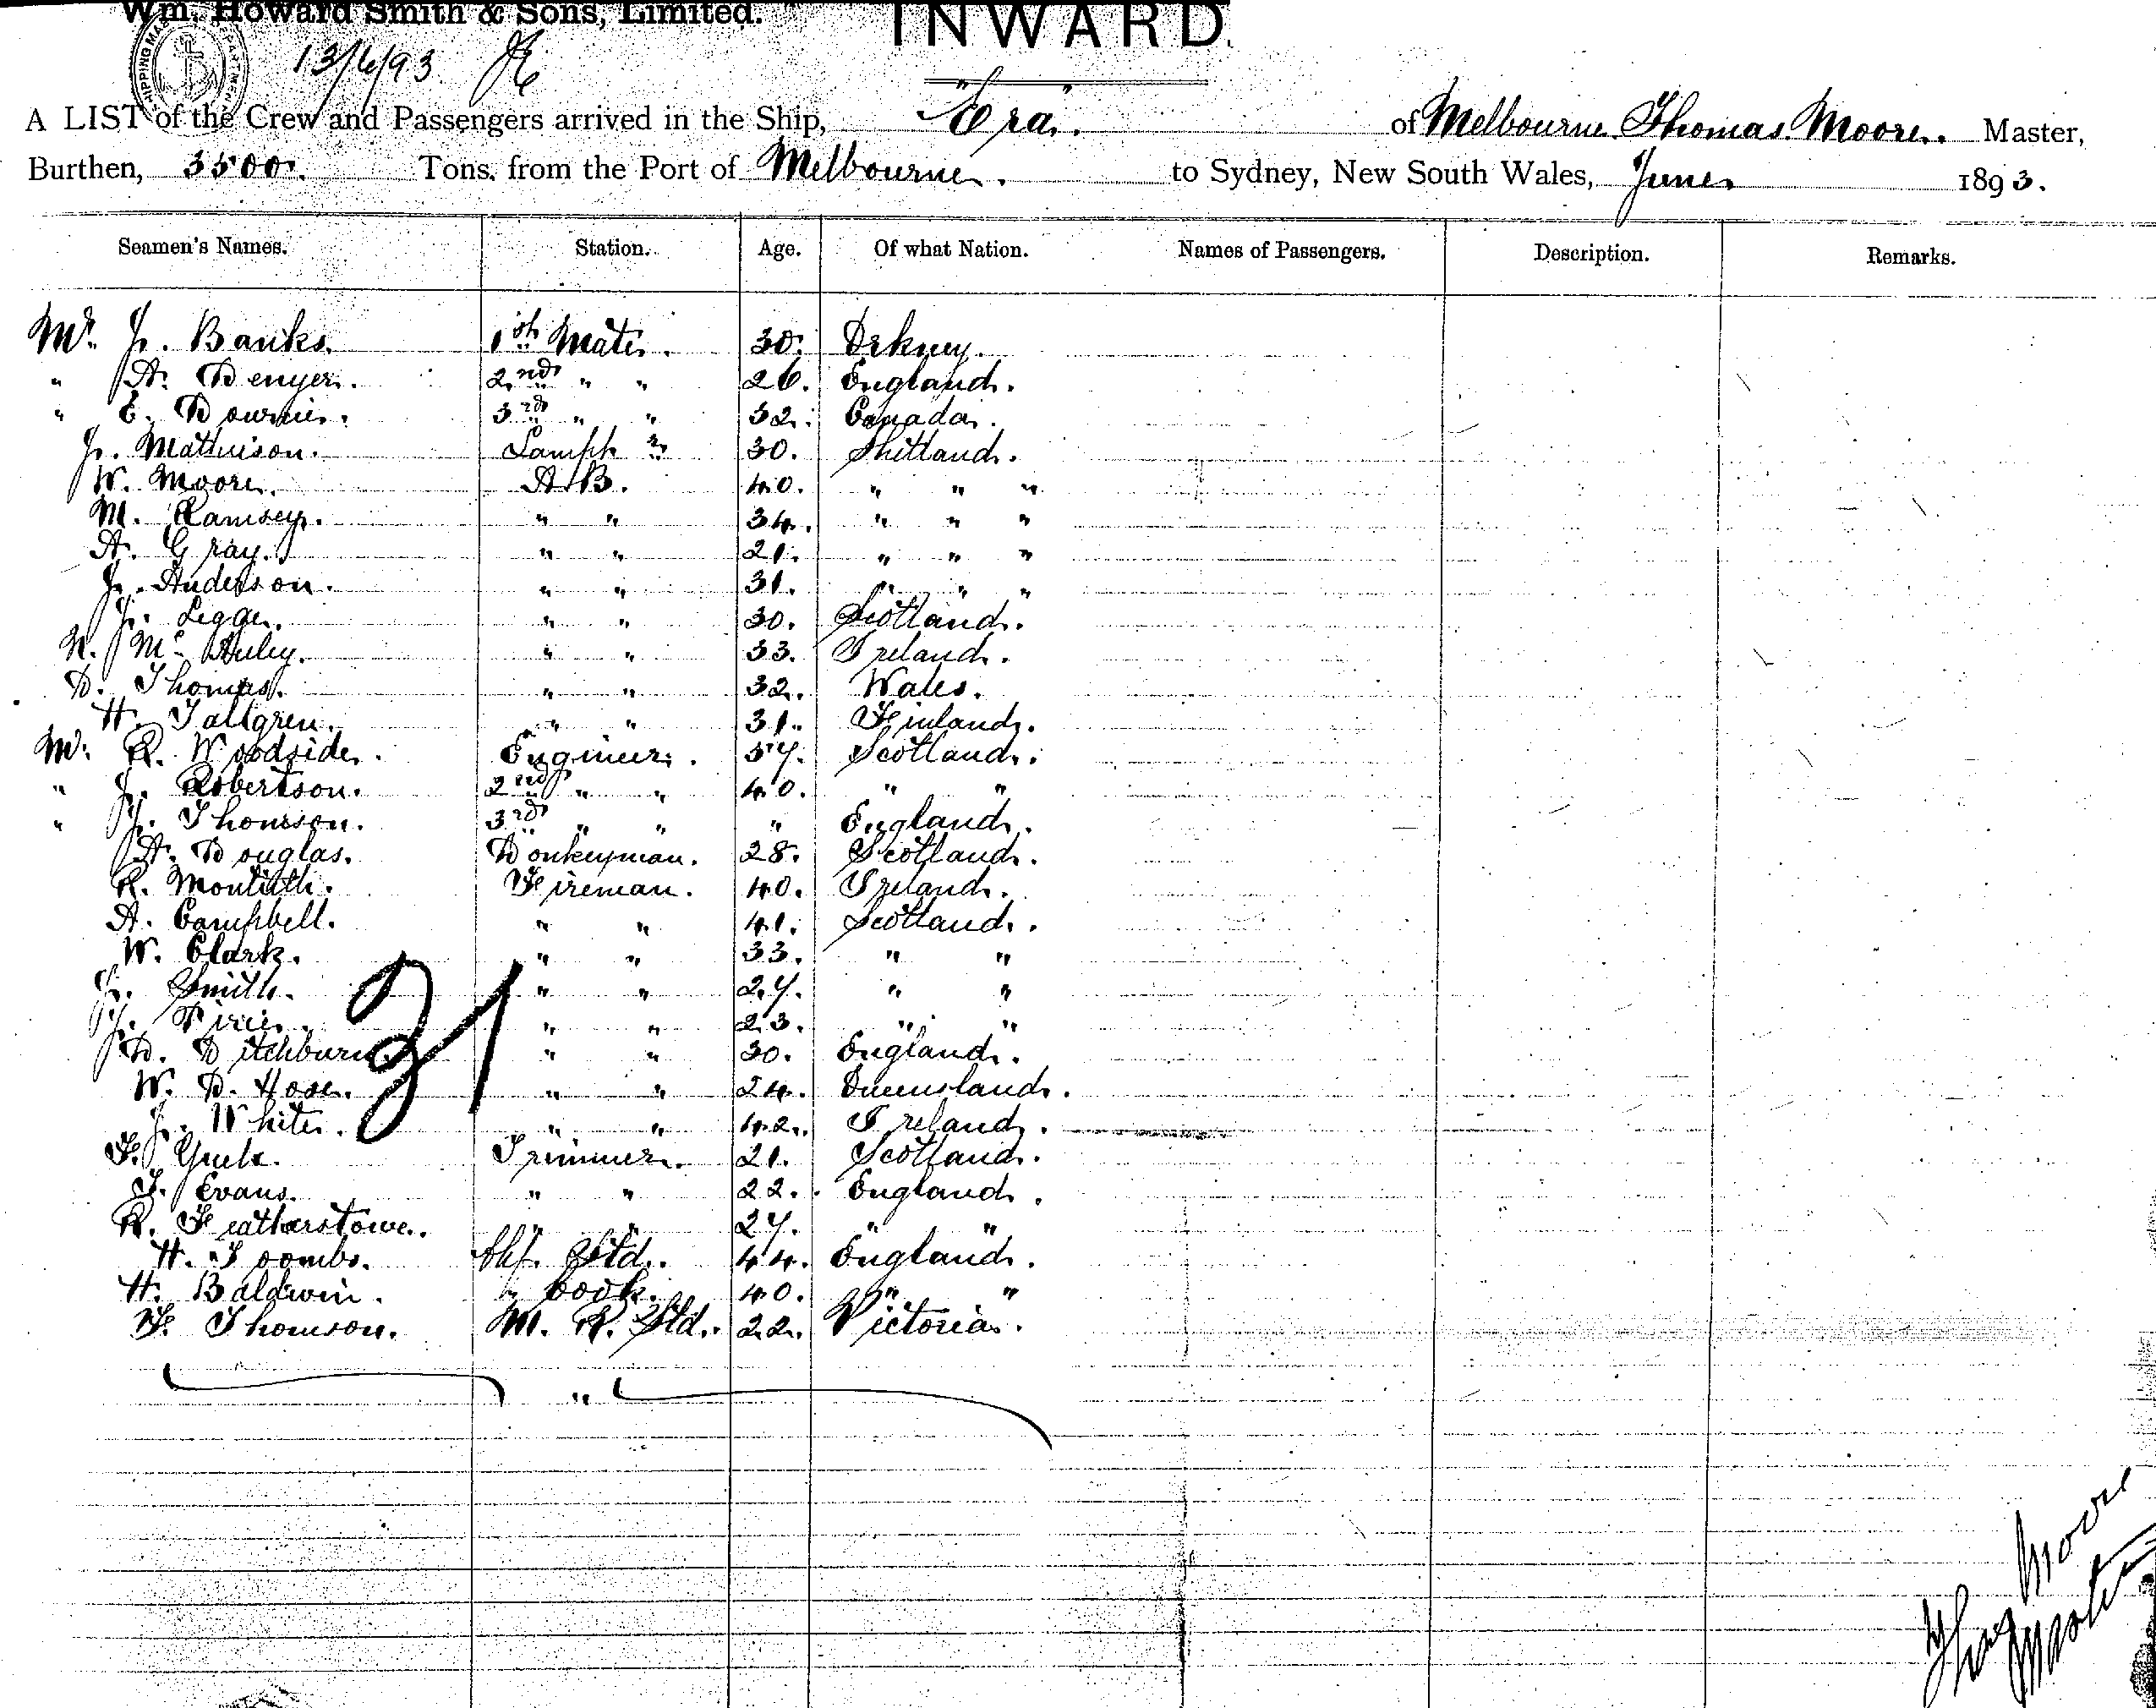 Wm. Howard Smith & Sons, Limited.
INWARD.
13/6/93
A LIST of the Crew and Passengers arrived in the Ship, "Era". of Melbourne Thomas Moore. Master,
Burthen, 3500. Tons. from the Port of Melbourne. to Sydney, New South Wales, June 1893.
Seamen's Names. Station. Age. Of what Nation. Names of Passengers. Description. Remarks.
Mr. J. Banks. 1st Mate. 30. Orkney.
" A. Denyer. 2nd " " 26. England.
" E. Downie. 3rd " " 32. Canada.
J. Mathieson. Lamp 30. Shetland.
W. Moore. A.B. 40. " " "
M. Ramsey. " " 34. " " "
A. Gray. " " 21. " " "
J. Anderson. " " 31. " " "
J. Legge. " " 30. Scotland.
N. Mc " " 33. Ireland.
D. Thomas. " " 32. Wales.
H. Tallgren. " " 31. Finland.
Mr. R. Woodside. Engineer. 57. Scotland.
" J. Robertson. 2nd " " 40. " "
" J. Thomson. 3rd " " " England.
A. Douglas. Donkeyman. 28. Scotland.
R. Monteith. Fireman. 40. Ireland.
A. Campbell. " " 41. Scotland.
W. Clark. " " 33. " "
J. Smith. " " 27. " "
J. Pirie. " " 23. " "
D. Ditchburn. " " 30. England.
W. D. Hose. " " 24. Queensland.
J. White. " " 42. Ireland.
31
F. Trimmer. 21. Scotland.
J. Evans. " " 22. England.
R. Featherstowe. " " 27. " "
H. Toombs. Chf. Std. 44. England.
H. Baldwin. " Cook. 40. " "
F. Thomson. M. R. Std. 22. Victoria.
"
Thos Moore
Master